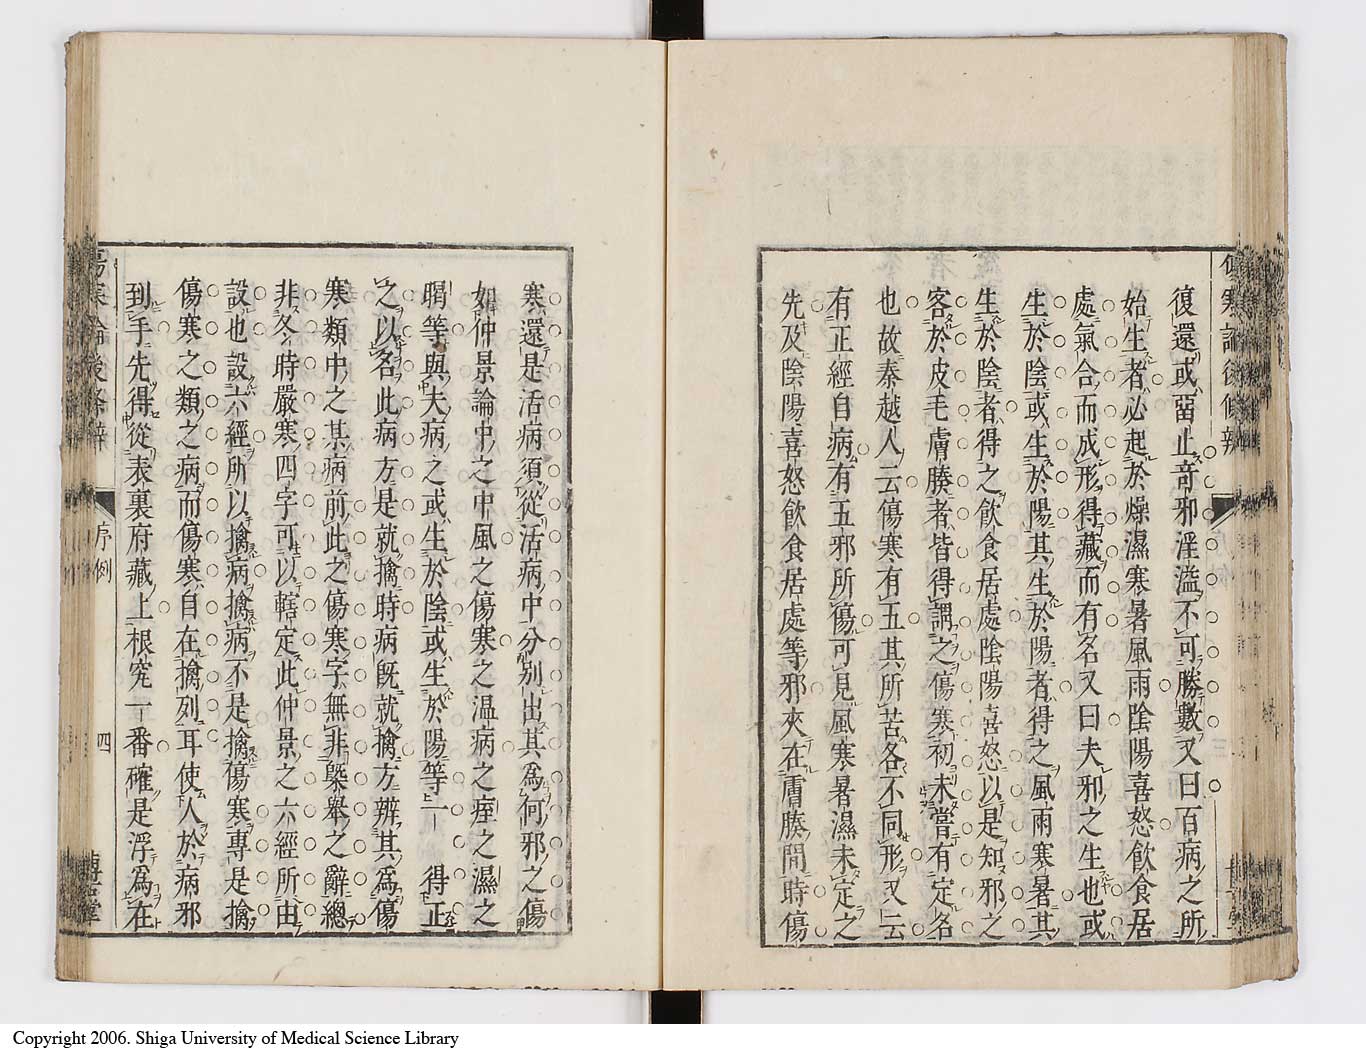 復還或留止奇邪淫溢不可勝數又曰百病之所
始生者必起於燥濕寒暑風雨陰陽喜怒飲食居
處氣合而成形得藏而有名又曰夫邪之生也或
生於陰或生於陽其生於陽者得之風雨寒暑其
生於陰者得之飲食居處陰陽喜怒以是知邪之
客於皮毛膚腠者皆得謂之傷寒初未嘗有定名
也故秦越人云傷寒有五其所苦各不同形又云
有正經自病有五邪所傷可見風寒暑濕未定之
先及陰陽喜怒飲食居處等邪夾在膚腠間時傷
寒還是活病須從活病中分別出其為何邪之傷
如仲景論中之中風之傷寒之温病之痓之濕之
暍等與夫病之或生於陰或生於陽等一一得正
之以名此病方是就擒時病既就擒方辨其為傷
寒類中之某病前此之傷寒字無非槩舉之辭總
非冬時嚴寒四字可以轄定此仲景之六經所由
設也設六經所以擒病擒病不是擒傷寒專是擒
傷寒之類之病而傷寒自在擒列耳使人於病邪
到手先得從表裏府藏上根究一番確是浮為在
傷寒論後條辨
序例
四
Copyright 2006. Shiga University of Medical Science Library